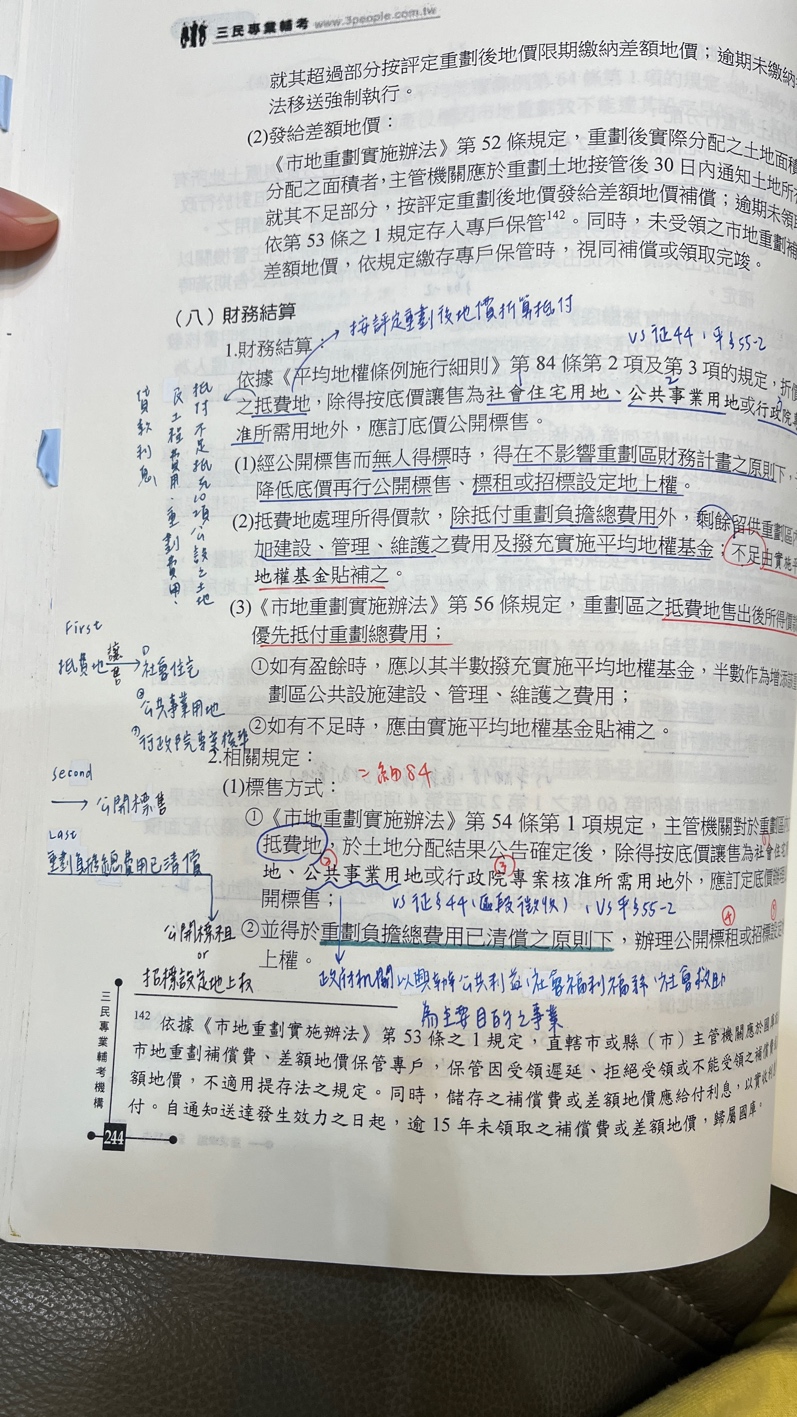 三民專業輔考 www.3people.com.tw
就其超過部分按評定重劃後地價限期繳納差額地價；逾期未繳納
法移送強制執行。
(2)發給差額地價：
《市地重劃實施辦法》第 52 條規定，重劃後實際分配之土地面積
分配之面積者，主管機關應於重劃土地接管後 30 日內通知土地所
就其不足部分，按評定重劃後地價發給差額地價補償；逾期未領
依第 53 條之 1 規定存入專戶保管142。同時，未受領之市地重劃補
差額地價，依規定繳存專戶保管時，視同補償或領取完竣。
（八）財務結算
按評定重劃後地價折算抵付
1.財務結算：
VS 征44，平§55-2
依據《平均地權條例施行細則》第 84 條第 2 項及第 3 項的規定，折價
之抵費地，除得按底價讓售為社會住宅用地、公共事業用地或行政院專
准所需用地外，應訂底價公開標售。
抵付不足抵充10項公設之土地
及工程費用、重劃費用、
貸款利息
(1)經公開標售而無人得標時，得在不影響重劃區財務計畫之原則下，
降低底價再行公開標售、標租或招標設定地上權。
(2)抵費地處理所得價款，除抵付重劃負擔總費用外，剩餘留供重劃區內
加建設、管理、維護之費用及撥充實施平均地權基金；不足由實施平
地權基金貼補之。
(3)《市地重劃實施辦法》第 56 條規定，重劃區之抵費地售出後所得價
優先抵付重劃總費用；
①如有盈餘時，應以其半數撥充實施平均地權基金，半數作為增添該重
劃區公共設施建設、管理、維護之費用；
②如有不足時，應由實施平均地權基金貼補之。
First
抵費地 讓售→ ①社會住宅
②公共事業用地
③行政院專案核準
second
→ 公開標售
Last
重劃負擔總費用已清償
公開標租
or
招標設定地上權
2.相關規定：
=細84
(1)標售方式：
①《市地重劃實施辦法》第 54 條第 1 項規定，主管機關對於重劃區內
抵費地，於土地分配結果公告確定後，除得按底價讓售為社會住宅
地、公共事業用地或行政院專案核准所需用地外，應訂定底價辦理
開標售；
② ③ ④
VS 征§44（區段徵收），VS 平§55-2
②並得於重劃負擔總費用已清償之原則下，辦理公開標租或招標設定
上權。
政府機關以興辦公共利益，社會福利福祉，社會救助
為主要目的之事業
142 依據《市地重劃實施辦法》第 53 條之 1 規定，直轄市或縣（市）主管機關應於國庫
市地重劃補償費、差額地價保管專戶，保管因受領遲延、拒絕受領或不能受領之補償費
額地價，不適用提存法之規定。同時，儲存之補償費或差額地價應給付利息，以實收利
付。自通知送達發生效力之日起，逾 15 年未領取之補償費或差額地價，歸屬國庫。
三民專業輔考機構
244